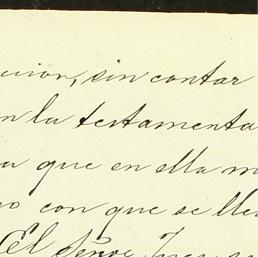 ucion, sin contar
n la testamenta
a que en ella m
no con que se lle
El Señor Juez